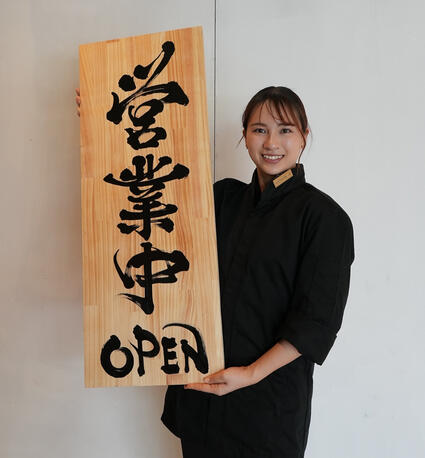 営業中
OPEN